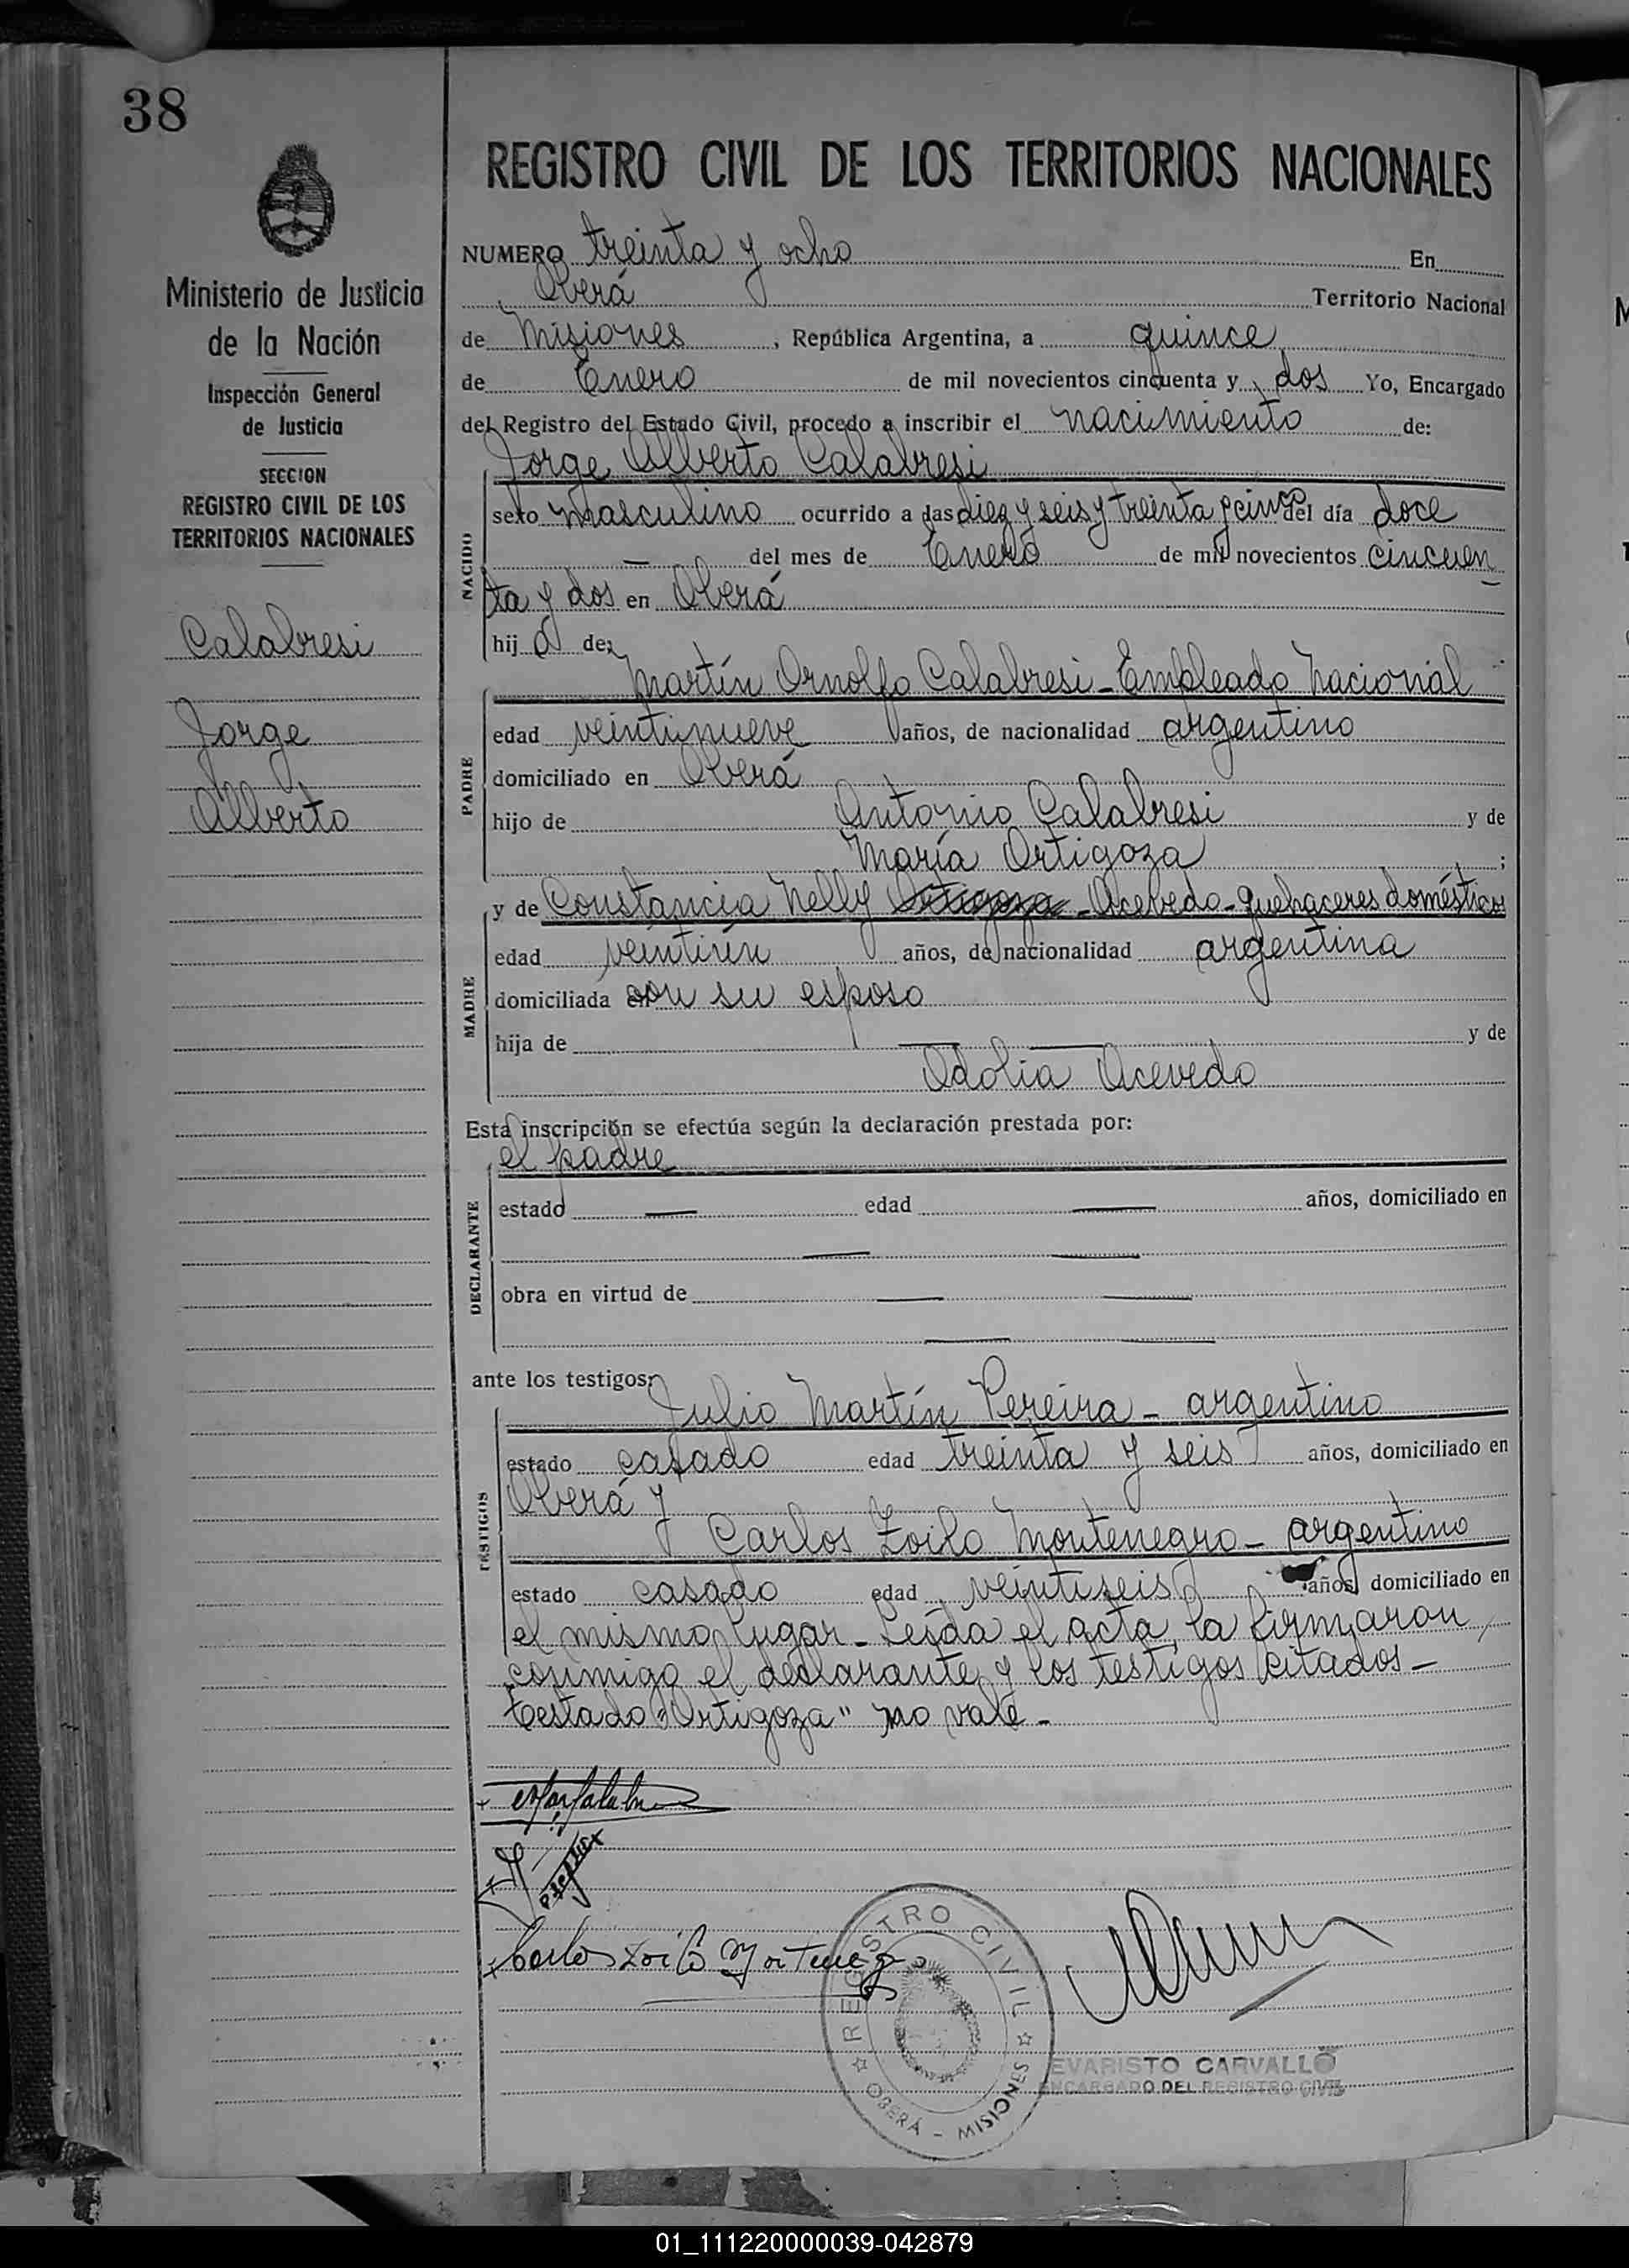 38
Ministerio de Justicia
de la Nación
Inspección General
de Justicia
SECCION
REGISTRO CIVIL DE LOS
TERRITORIOS NACIONALES
Calabresi
Jorge
Alberto
REGISTRO CIVIL DE LOS TERRITORIOS NACIONALES
NUMERO treinta y ocho En
Oberá Territorio Nacional
de Misiones, República Argentina, a quince
de Enero de mil novecientos cincuenta y dos Yo, Encargado
del Registro del Estado Civil, procedo a inscribir el nacimiento de:
Jorge Alberto Calabresi
NACIDO
sexo masculino ocurrido a las diez y seis y treinta y cinco del día doce
— del mes de Enero de mil novecientos cincuen
ta y dos en Oberá
hijo de:
Martín Arnolfo Calabresi - Empleado Nacional
PADRE
edad veintinueve años, de nacionalidad argentino
domiciliado en Oberá
hijo de Antonio Calabresi y de
María Ortigoza ;
y de Constancia Nelly Ortigoza - Acevedo - quehaceres domésticos
MADRE
edad veintiún años, de nacionalidad argentina
domiciliada con su esposo
hija de — — y de
Odolia Acevedo
Esta inscripción se efectúa según la declaración prestada por:
el padre
DECLARANTE
estado — edad — años, domiciliado en
— —
obra en virtud de — —
— —
ante los testigos:
Julio Martín Pereira - argentino
TESTIGOS
estado casado edad treinta y seis años, domiciliado en
Oberá y
Carlos Zoilo Montenegro - argentino
estado casado edad veintiseis años, domiciliado en
el mismo lugar - Leída el acta, la firmaron
conmigo el declarante y los testigos citados -
Testado "Ortigoza" no vale -
Carlos Zoilo Montenegro
REGISTRO CIVIL
OBERÁ - MISIONES
EVARISTO CARVALLO
ENCARGADO DEL REGISTRO CIVIL
01_111220000039-042879